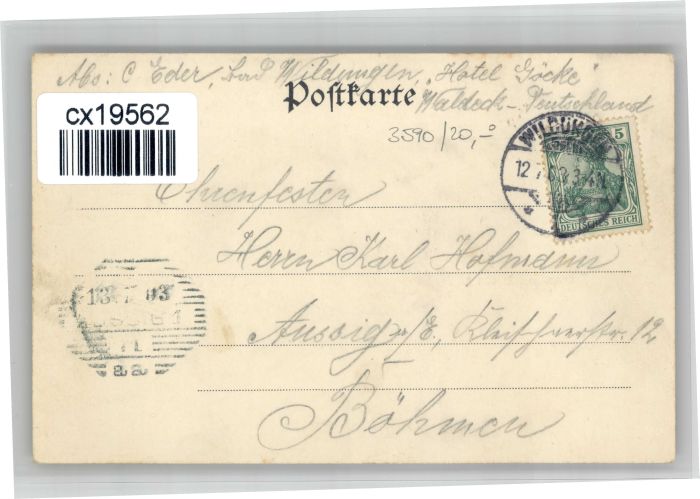 Abs: C Eder, bad Wildungen, "Hotel Göcke"
Postkarte Waldeck-Deutschland
cx19562
3590/20,-
WILDUNGEN
5
12.7.03.3-4N
DEUTSCHES REICH
Ehrenfesten
Herrn Karl Hofmann
13 7 03
Aussig a/E,
12
11
Böhmen